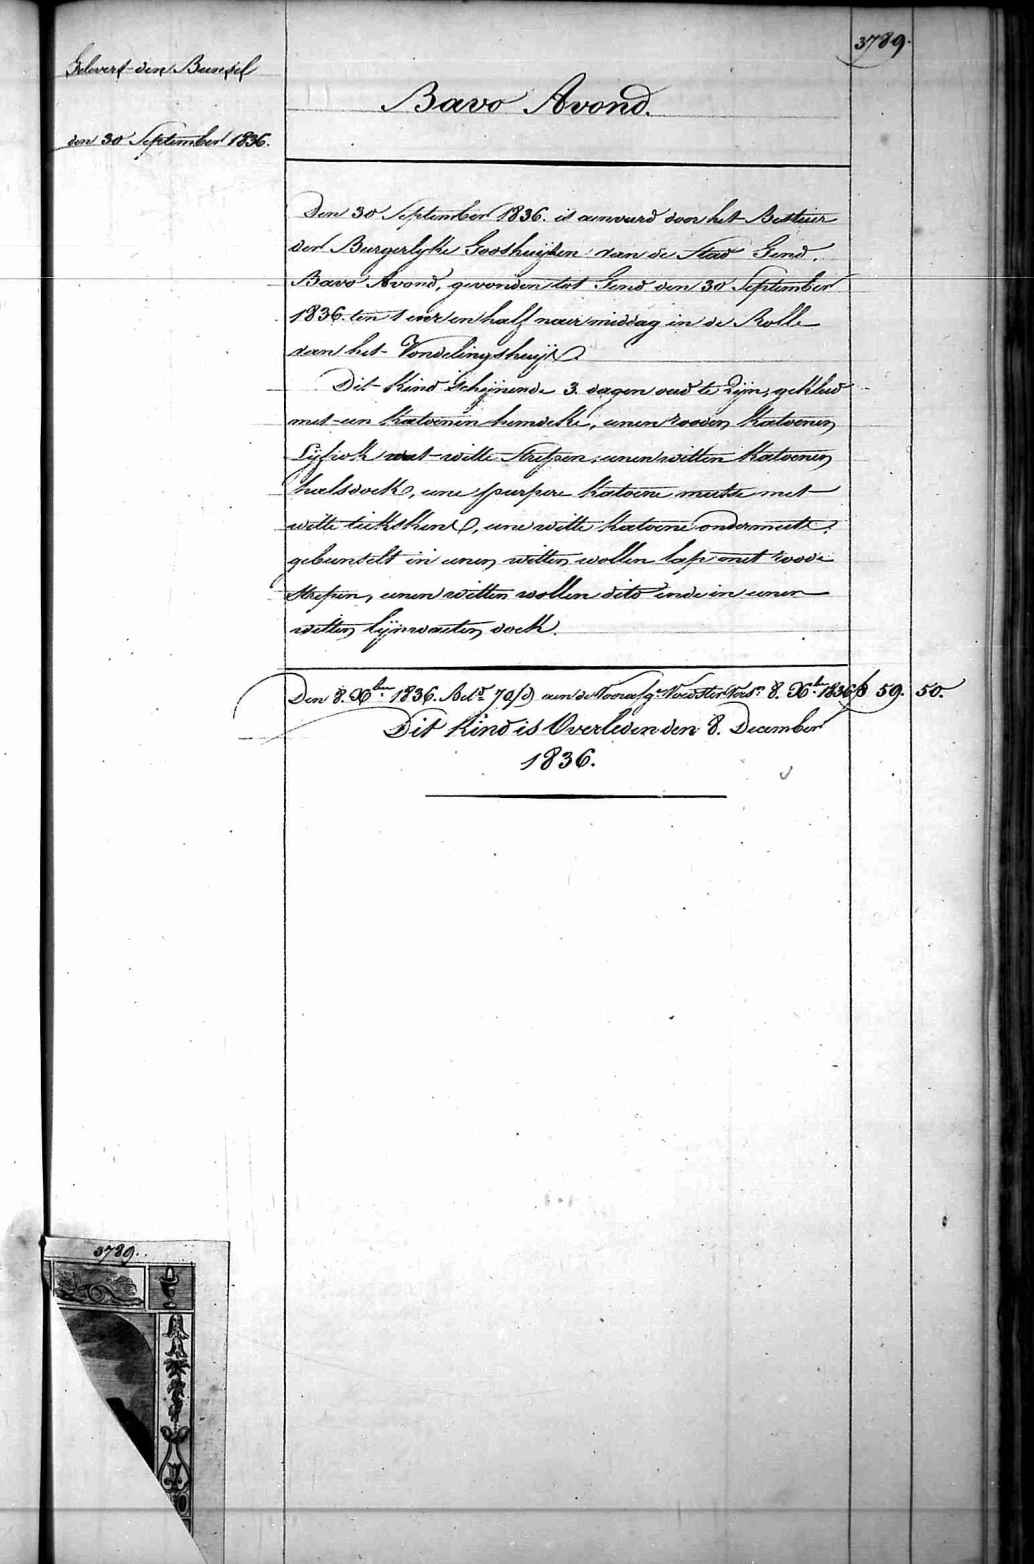 3789.
Gelevert den Bunsel
den 30 September 1836.
Bavo Avond.
Den 30 September 1836. is aenveird door het Bestier
der Burgerlyke Godshuijzen van de Stad Gend.
Bavo Avond, gevonden tot Gend den 30 September
1836. ten 1 uer en half naer middag in de Rolle
van het Vondelingshuijs.
Dit Kind schijnende 3. dagen oud te zijn, gekleed
met een katoenen hemdeke, eenen rooden katoenen
Lijfrok met witte streepen, eenen witten katoenen
halsdoek, eene purpere katoene mutse met
witte tickskens, eene witte katoene ondermutse.
gebunselt in eenen witten wollen lap met roode
strepen, eenen witten wollen dito ende in eenen
witten lijnwaeten doek.
Den 8. Xber 1836. Bet. 70 aen de 8. Xber 1836 59. 50.
Dit Kind is Overleden den 8. December
1836.
3789.